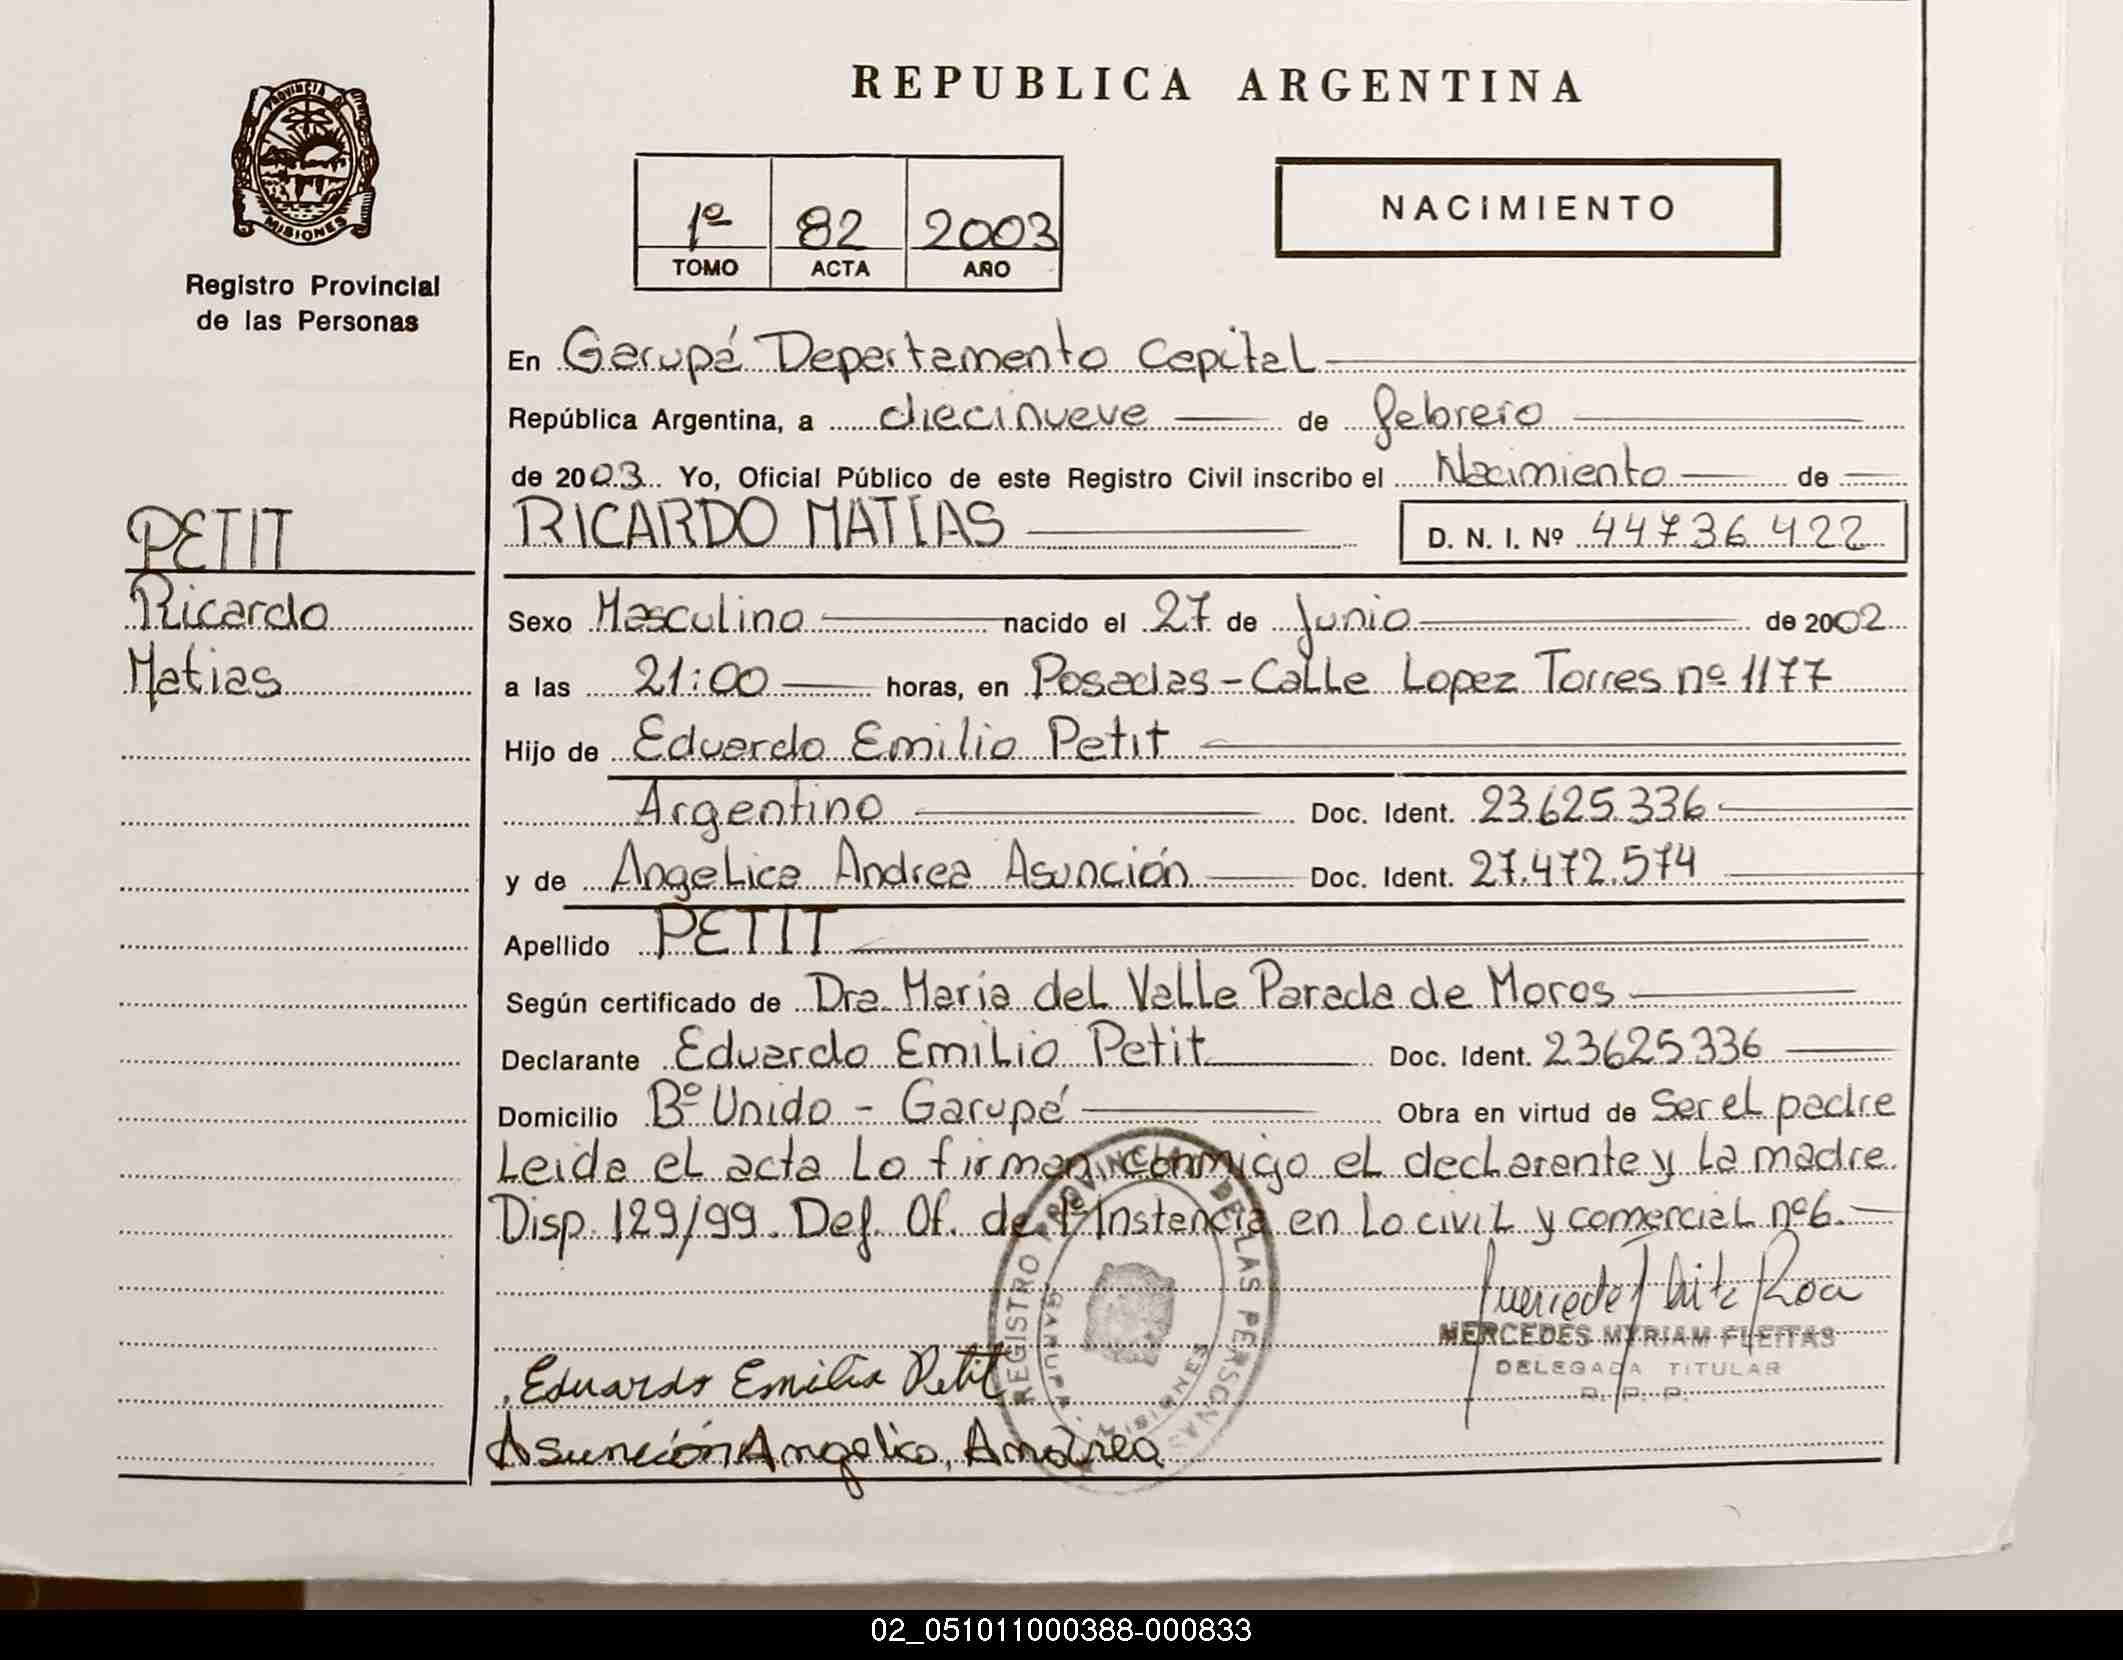 PROVINCIA DE
MISIONES
Registro Provincial
de las Personas
PETIT
Ricardo
Matias
REPUBLICA ARGENTINA
1º 82 2003
TOMO ACTA AÑO
NACIMIENTO
En Garupá Departamento Capital
República Argentina, a diecinueve de febrero
de 2003 Yo, Oficial Público de este Registro Civil inscribo el Nacimiento de
RICARDO MATIAS D. N. I. Nº 44736422
Sexo Masculino nacido el 27 de Junio de 2002
a las 21:00 horas, en Posadas - Calle Lopez Torres nº 1177
Hijo de Eduardo Emilio Petit
Argentino Doc. Ident. 23.625.336
y de Angelica Andrea Asunción Doc. Ident. 27.472.574
Apellido PETIT
Según certificado de Dra. Maria del Valle Parada de Moros
Declarante Eduardo Emilio Petit Doc. Ident. 23625336
Domicilio Bº Unido - Garupá Obra en virtud de Ser el padre
Leida el acta Lo firman conmigo el declarante y La madre.
Disp. 129/99. Def. Of. de 1º Instancia en Lo civil y comercial nº6.
REGISTRO PROVINCIAL DE LAS PERSONAS
GARUPA - MISIONES
MERCEDES MYRIAM FLEITAS
DELEGADA TITULAR
R. P. P.
Eduardo Emilio Petit
Asunción Angelica, Andrea
02_051011000388-000833